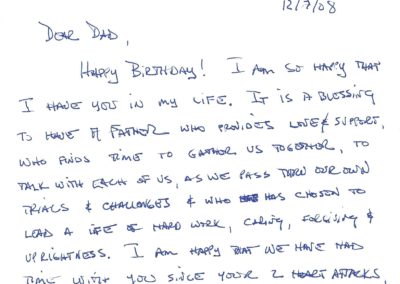 12/7/08
Dear Dad,
Happy Birthday! I am so happy that
I have you in my life. It is a blessing
to have a father who provides love & support,
who finds time to gather us together, to
talk with each of us, as we pass thru our own
trials & challenges & who has chosen to
lead a life of hard work, caring, forgiving &
uprightness. I am happy that we have had
time with you since your 2 heart attacks,